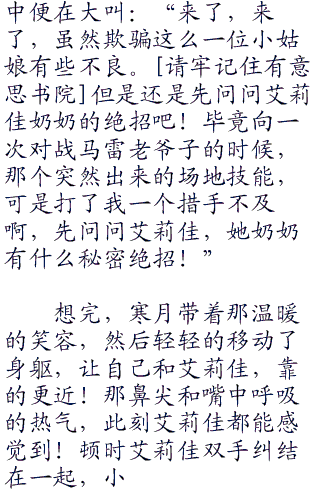 中便在大叫：“来了，来
了，虽然欺骗这么一位小姑
娘有些不良。[请牢记住有意
思书院]但是还是先问问艾莉
佳奶奶的绝招吧！毕竟向一
次对战马雷老爷子的时候，
那个突然出来的场地技能，
可是打了我一个措手不及
啊，先问问艾莉佳，她奶奶
有什么秘密绝招！”
想完，寒月带着那温暖
的笑容，然后轻轻的移动了
身躯，让自己和艾莉佳，靠
的更近！那鼻尖和嘴中呼吸
的热气，此刻艾莉佳都能感
觉到！顿时艾莉佳双手纠结
在一起，小